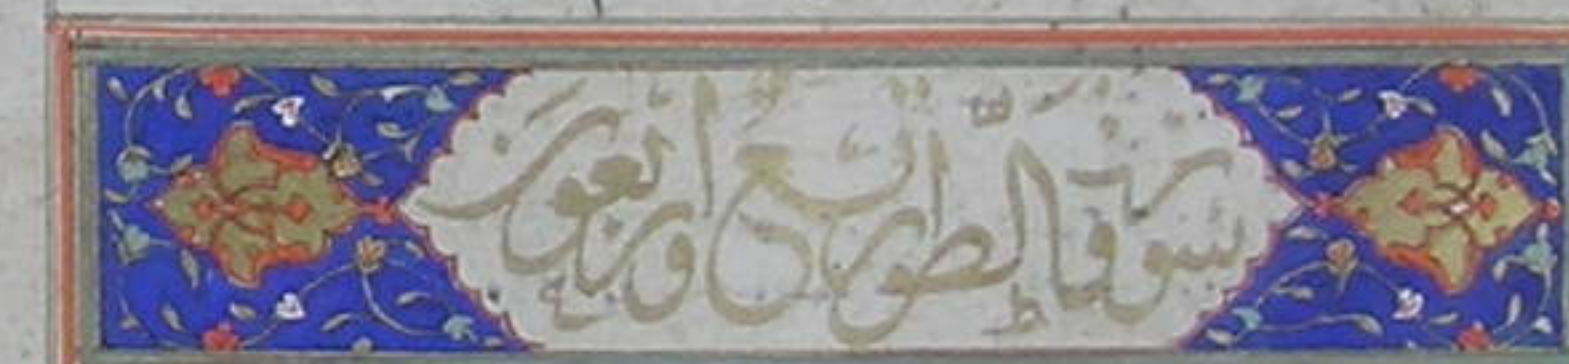 سورة والطور اربع واربعون